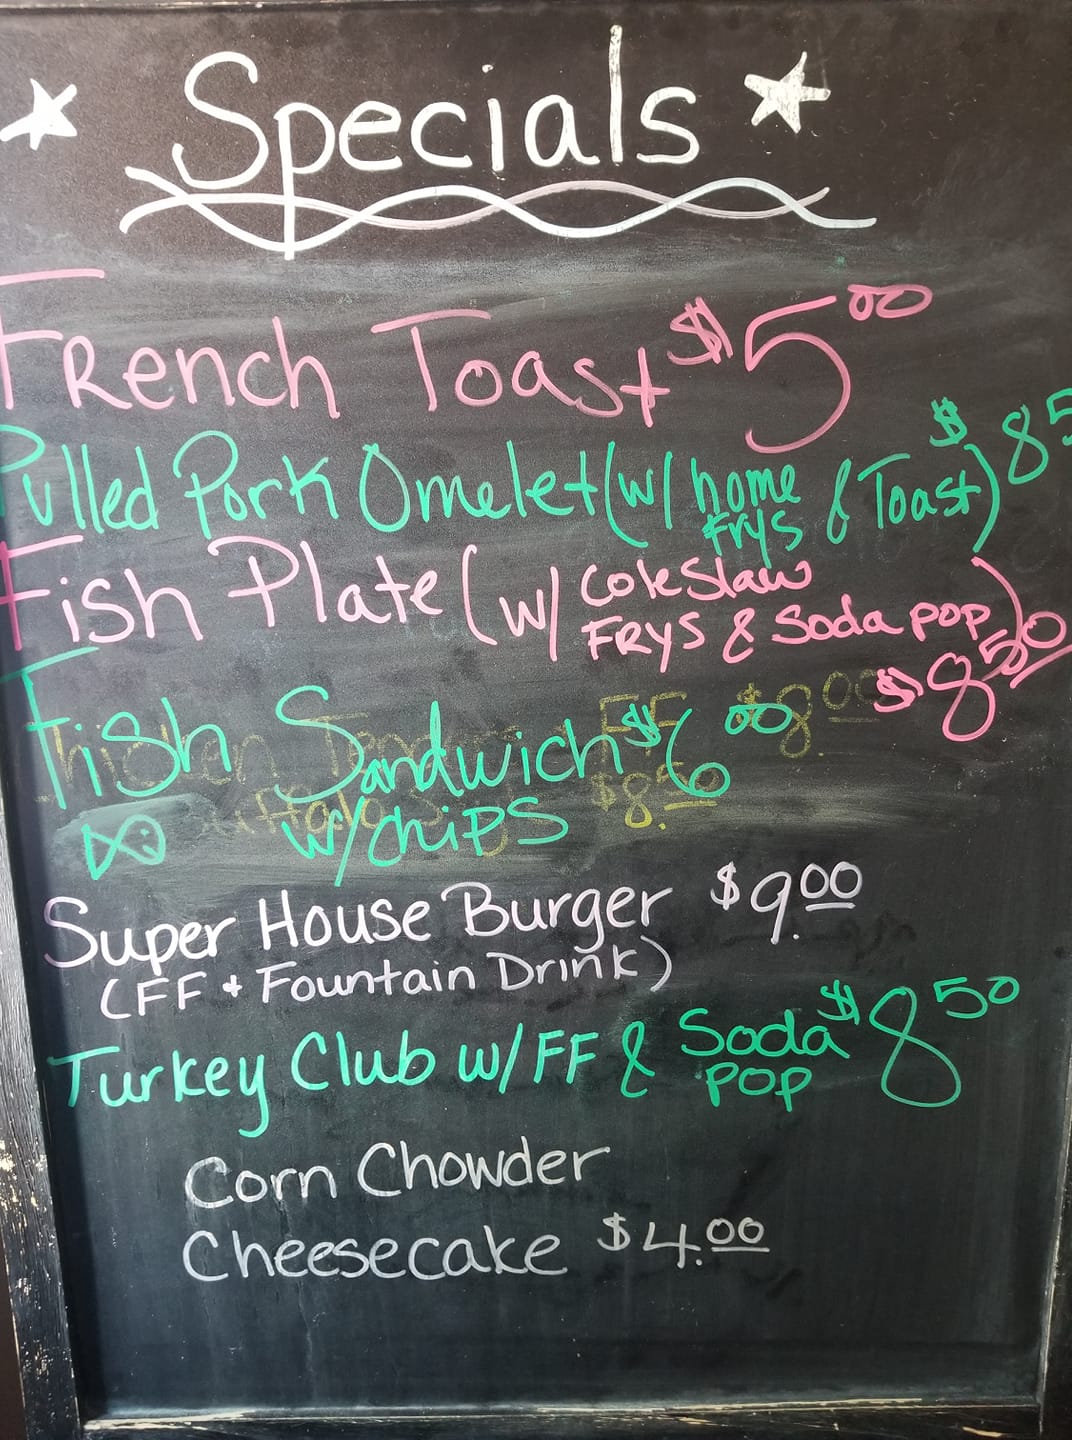 Specials
French Toast $5 00
Pulled Pork Omelet (w/ home frys & Toast) $85
Fish Plate (w/ Coleslaw
FRYS & Soda pop) $8 50
Fish Sandwich $6 00
w/chips
$8.00
$8.50
Super House Burger $9.00
(FF + Fountain Drink)
Turkey Club w/FF & Soda pop $8 50
Corn Chowder
Cheesecake $4.00